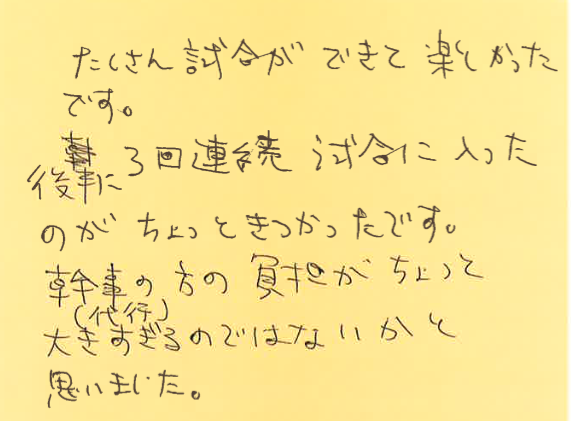 たくさん試合ができて楽しかった
です。
後半に3回連続試合に入った
のがちょっときつかったです。
幹事の方の負担がちょっと
(代行)
大きすぎるのではないかと
思いました。